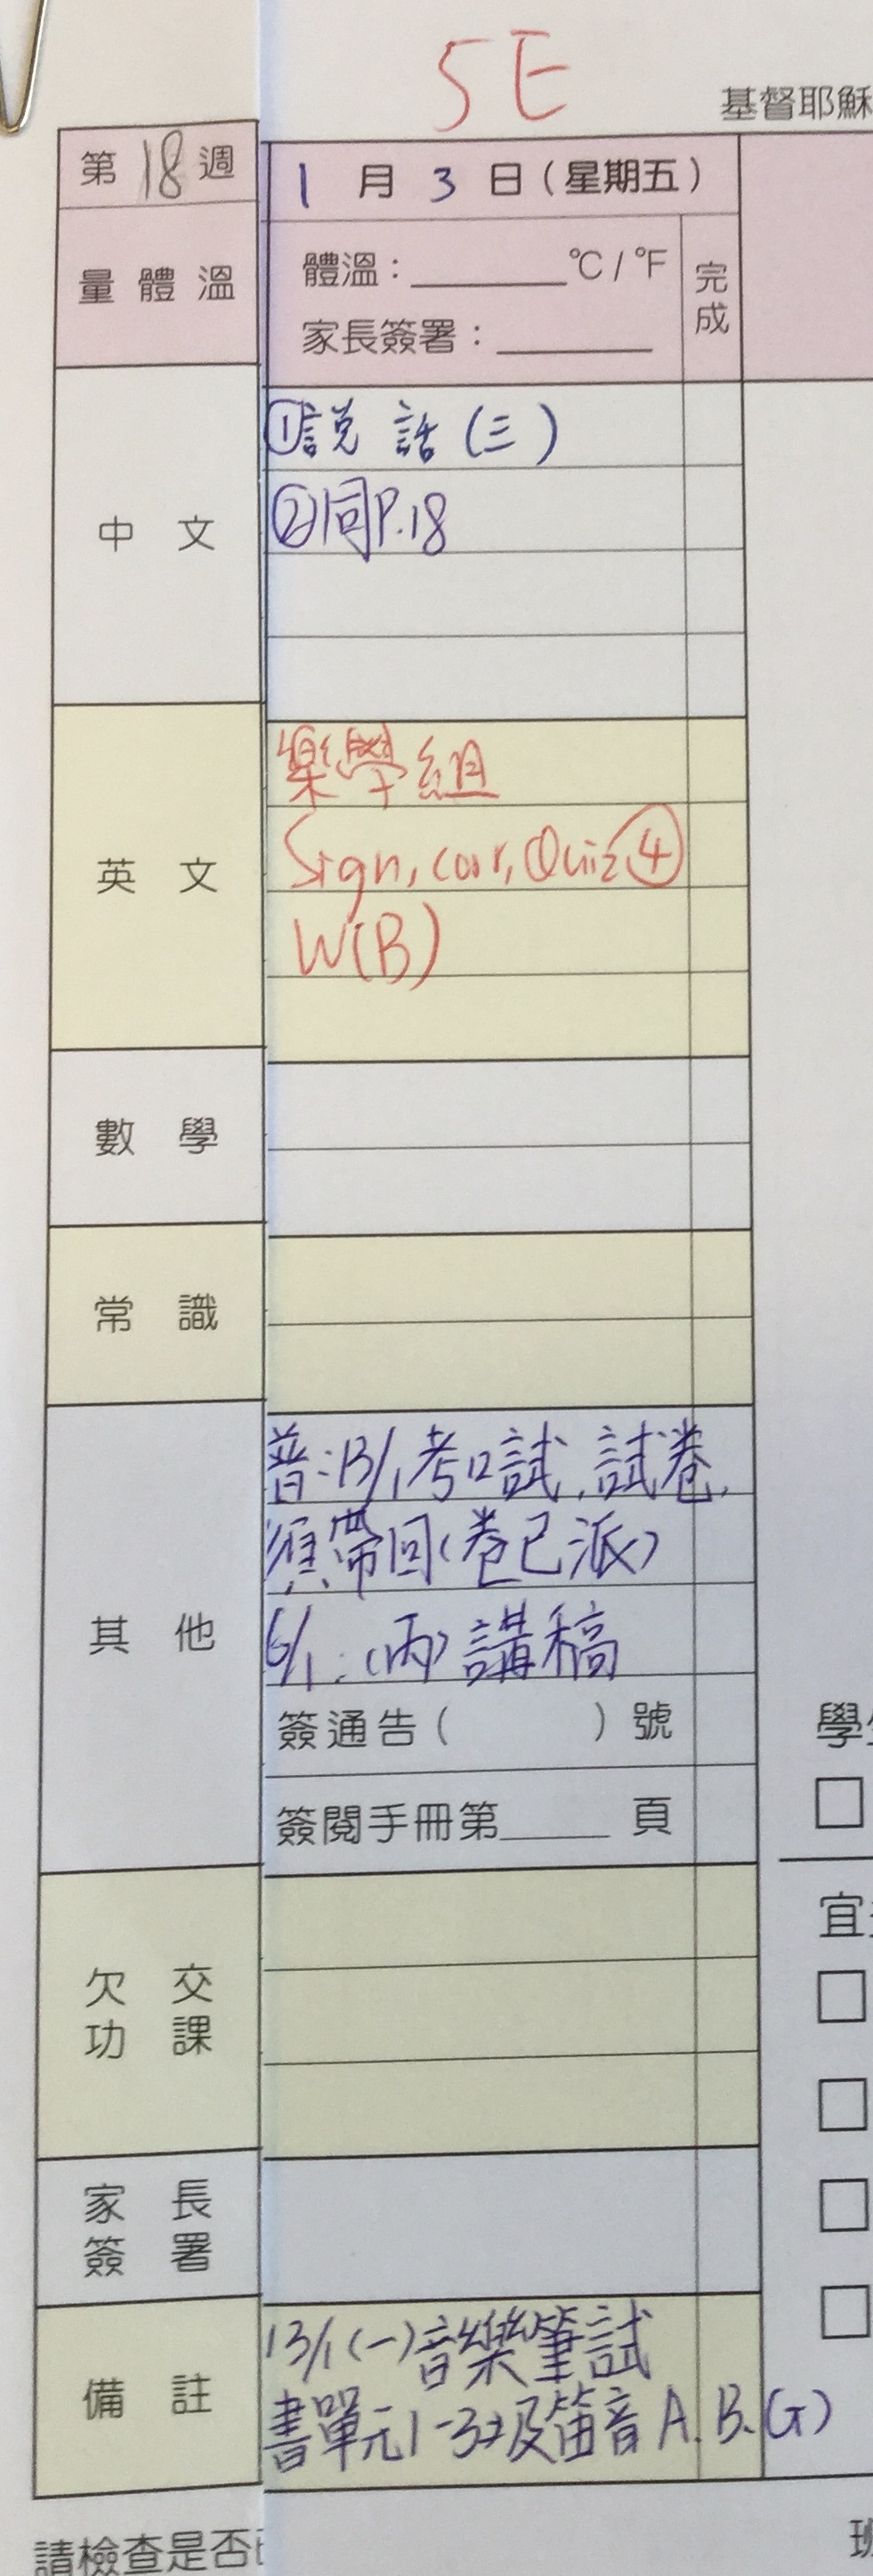 5E
基督耶穌
第18週
1月3日(星期五)
量體溫
體溫：______°C/°F
家長簽署：______
完成
中文
①説話(三)
②同P.18
英文
樂學組
Sign, cor, Quiz④
W(B)
數學
常識
其他
普:13/1考口試,試卷,
須帶回(卷已派)
6/1:(丙)講稿
簽通告(　　　)號
簽閱手冊第____頁
學
欠交功課
宜
家長簽署
備註
13/1(一)音樂筆試
書單元1-3及笛音A.B.(G)
請檢查是否已
班